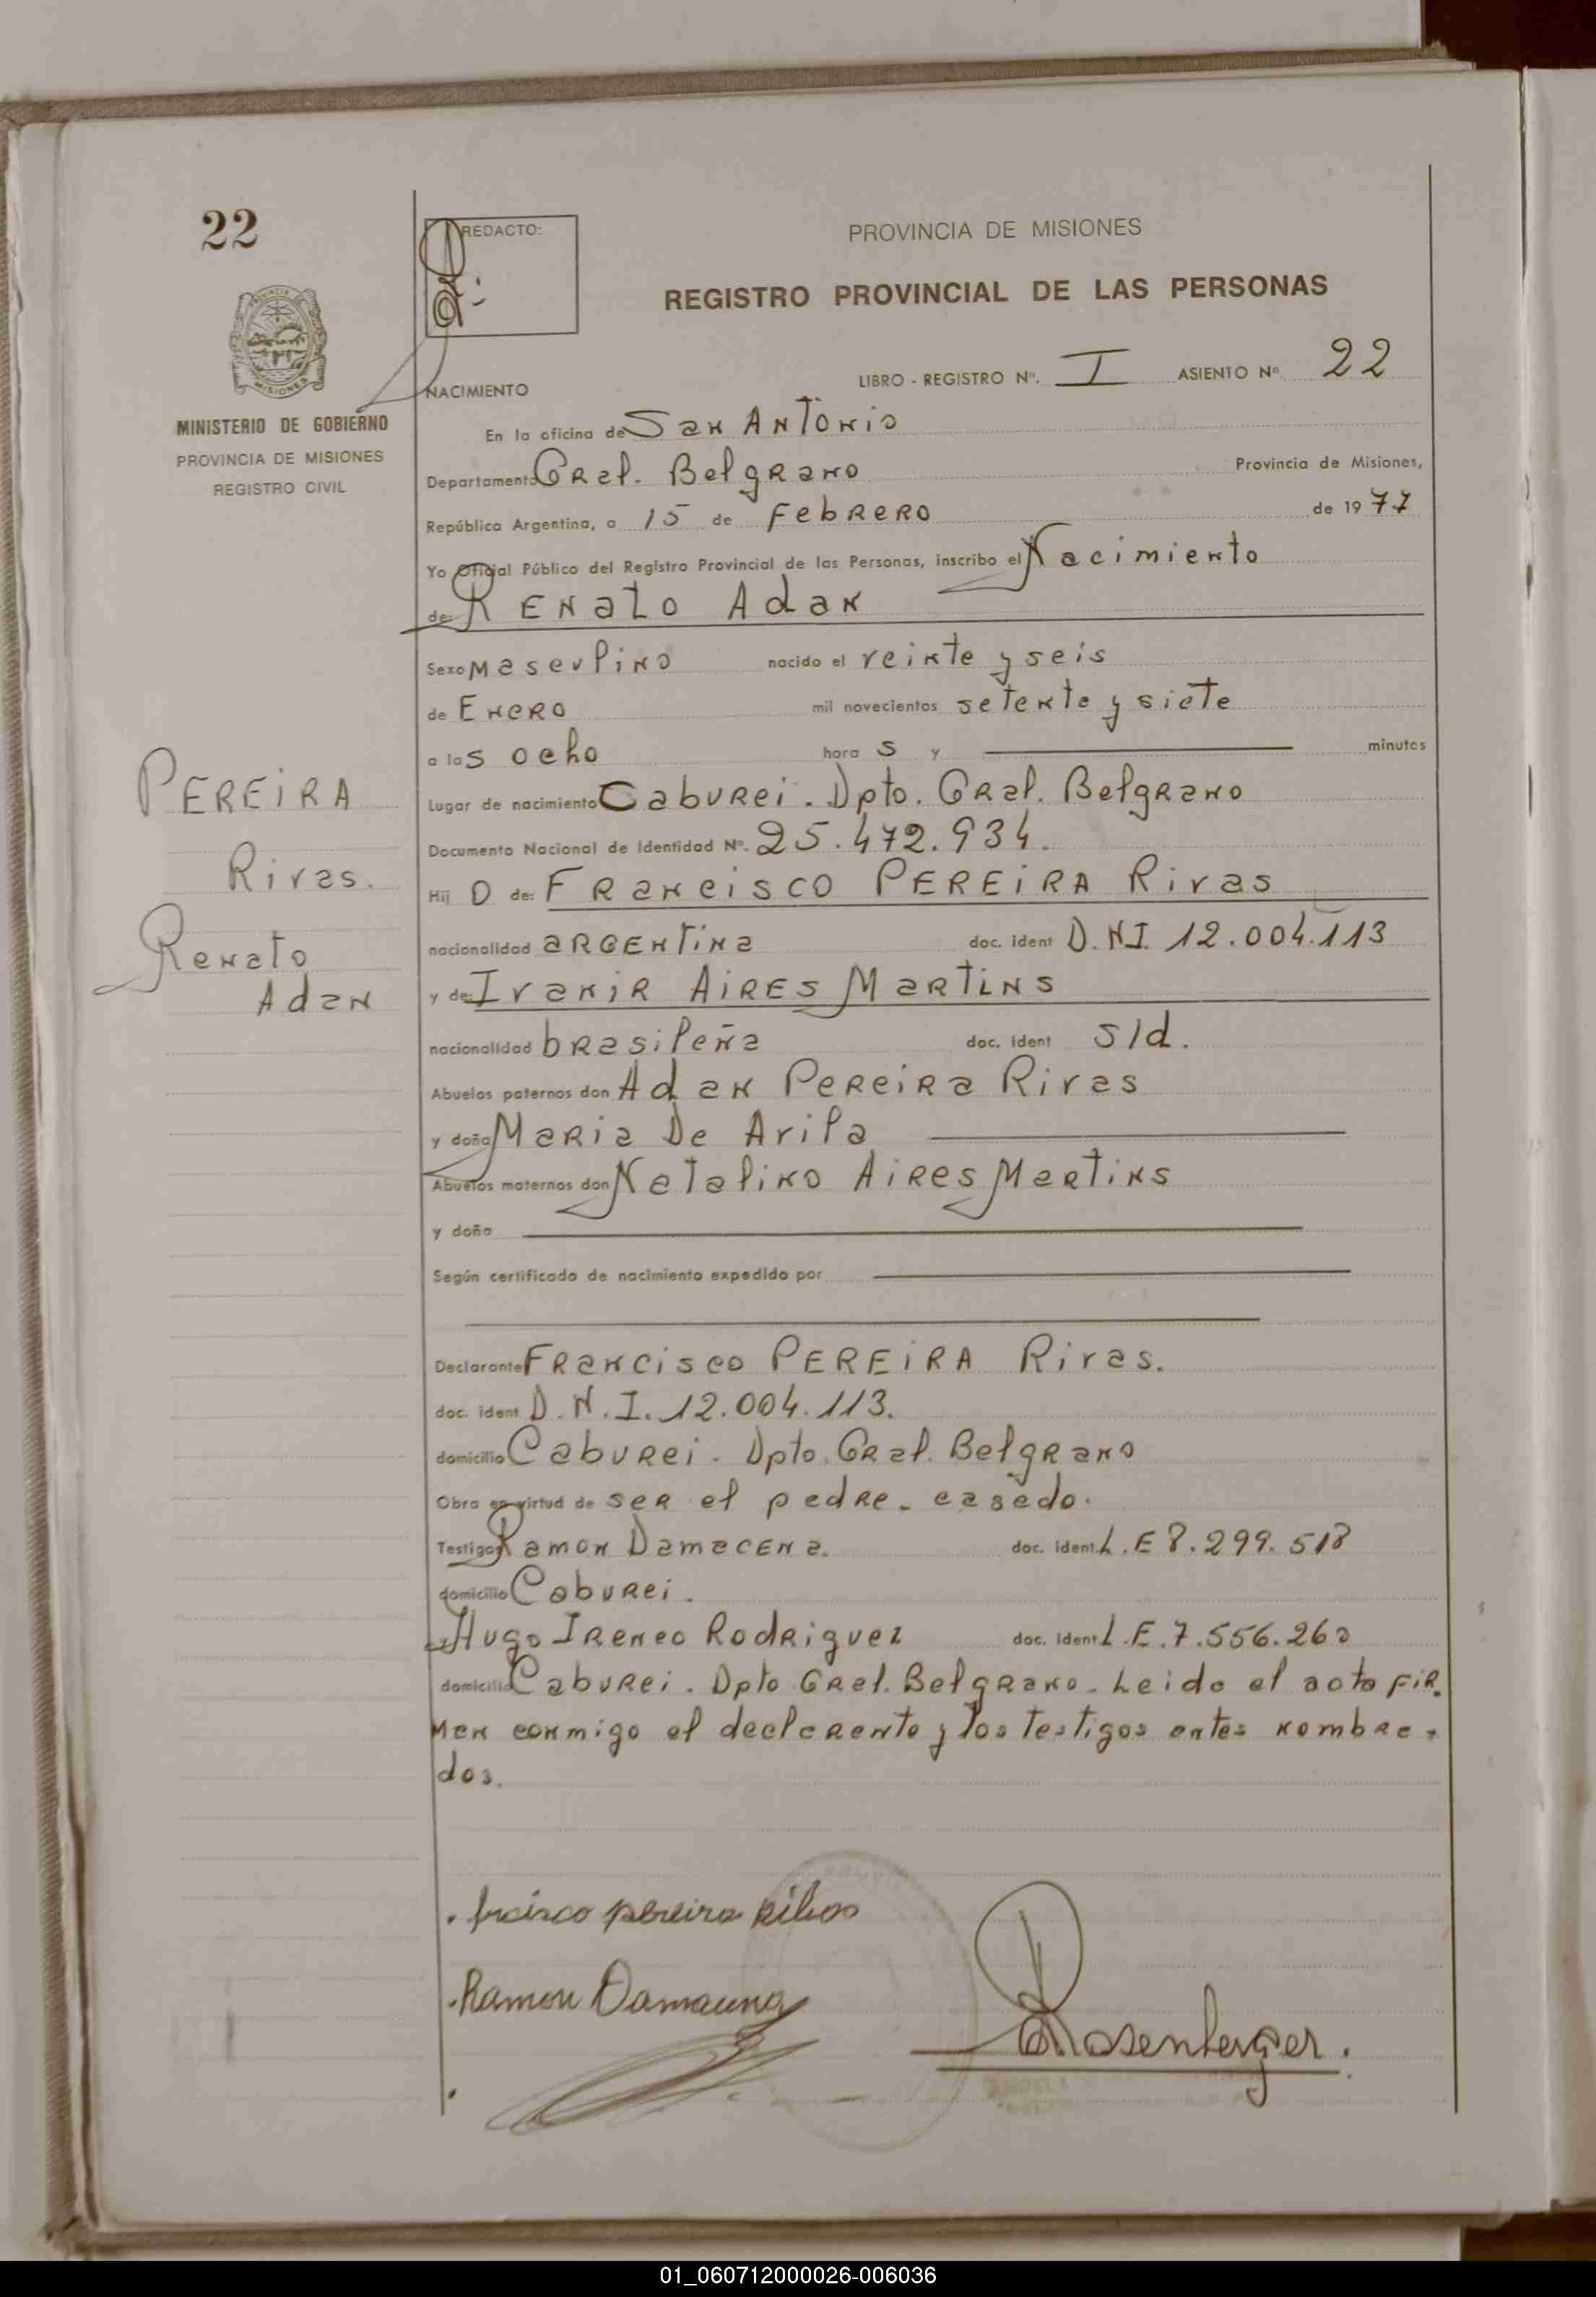 22
REDACTO:
PROVINCIA DE MISIONES
REGISTRO PROVINCIAL DE LAS PERSONAS
LIBRO - REGISTRO Nº. I ASIENTO Nº 22
NACIMIENTO
MISIONES
MINISTERIO DE GOBIERNO
PROVINCIA DE MISIONES
REGISTRO CIVIL
En la oficina de San Antonio
Departamento Gral. Belgrano Provincia de Misiones,
República Argentina, a 15 de Febrero de 1977
Yo Oficial Público del Registro Provincial de las Personas, inscribo el Nacimiento
de: Renato Adan
Sexo masculino nacido el veinte y seis
de Enero mil novecientos setenta y siete
a las ocho horas y minutos
Lugar de nacimiento Caburei. Dpto. Gral. Belgrano
Documento Nacional de Identidad Nº. 25.472.934.
Hijo de: Francisco PEREIRA Rivas
nacionalidad argentina doc. ident D.N.I. 12.004.113
y de: Ivanir AIRES Martins
nacionalidad brasileña doc. ident s/d.
Abuelos paternos don Adan Pereira Rivas
y doña Maria De Avila
Abuelos maternos don Natalino Aires Martins
y doña
Según certificado de nacimiento expedido por
Declarante Francisco PEREIRA Rivas.
doc. ident D.N.I. 12.004.113.
domicilio Caburei. Dpto. Gral. Belgrano
Obra en virtud de ser el padre. casado.
Testigos Ramon Damacena. doc. ident. L.E 8.299.518
domicilio Caburei.
Hugo Ireneo Rodriguez doc. ident L.E. 7.556.260
domicilio Caburei. Dpto Gral. Belgrano. Leida el acta fir
man conmigo el declarante y los testigos antes nombra
dos.
PEREIRA
Rivas.
Renato
Adan
pereira Ribas
Ramon Damacena
Rosenberger.
01_060712000026-006036